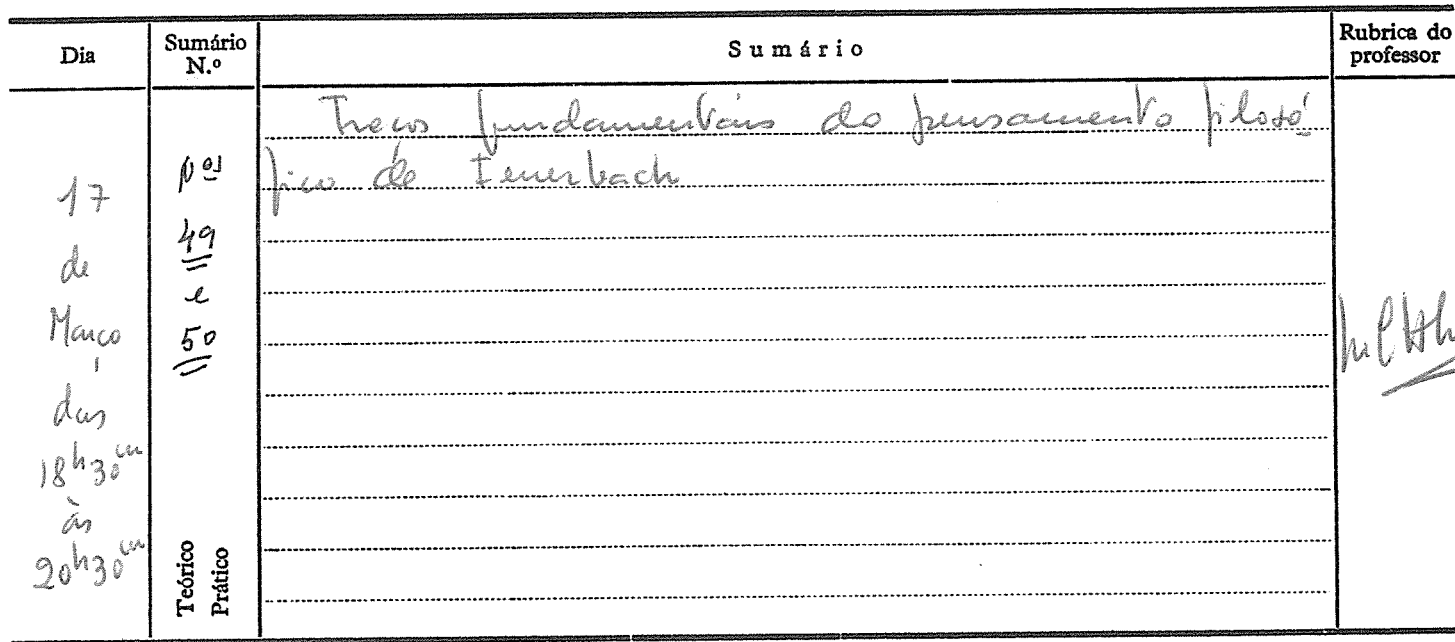 Dia
Sumário N.º
Sumário
Rubrica do professor
17
de
Março
das
18h30m
às
20h30m
nos
49
e
50
Teórico
Prático
Traços fundamentais do pensamento filosó
fico de Feuerbach